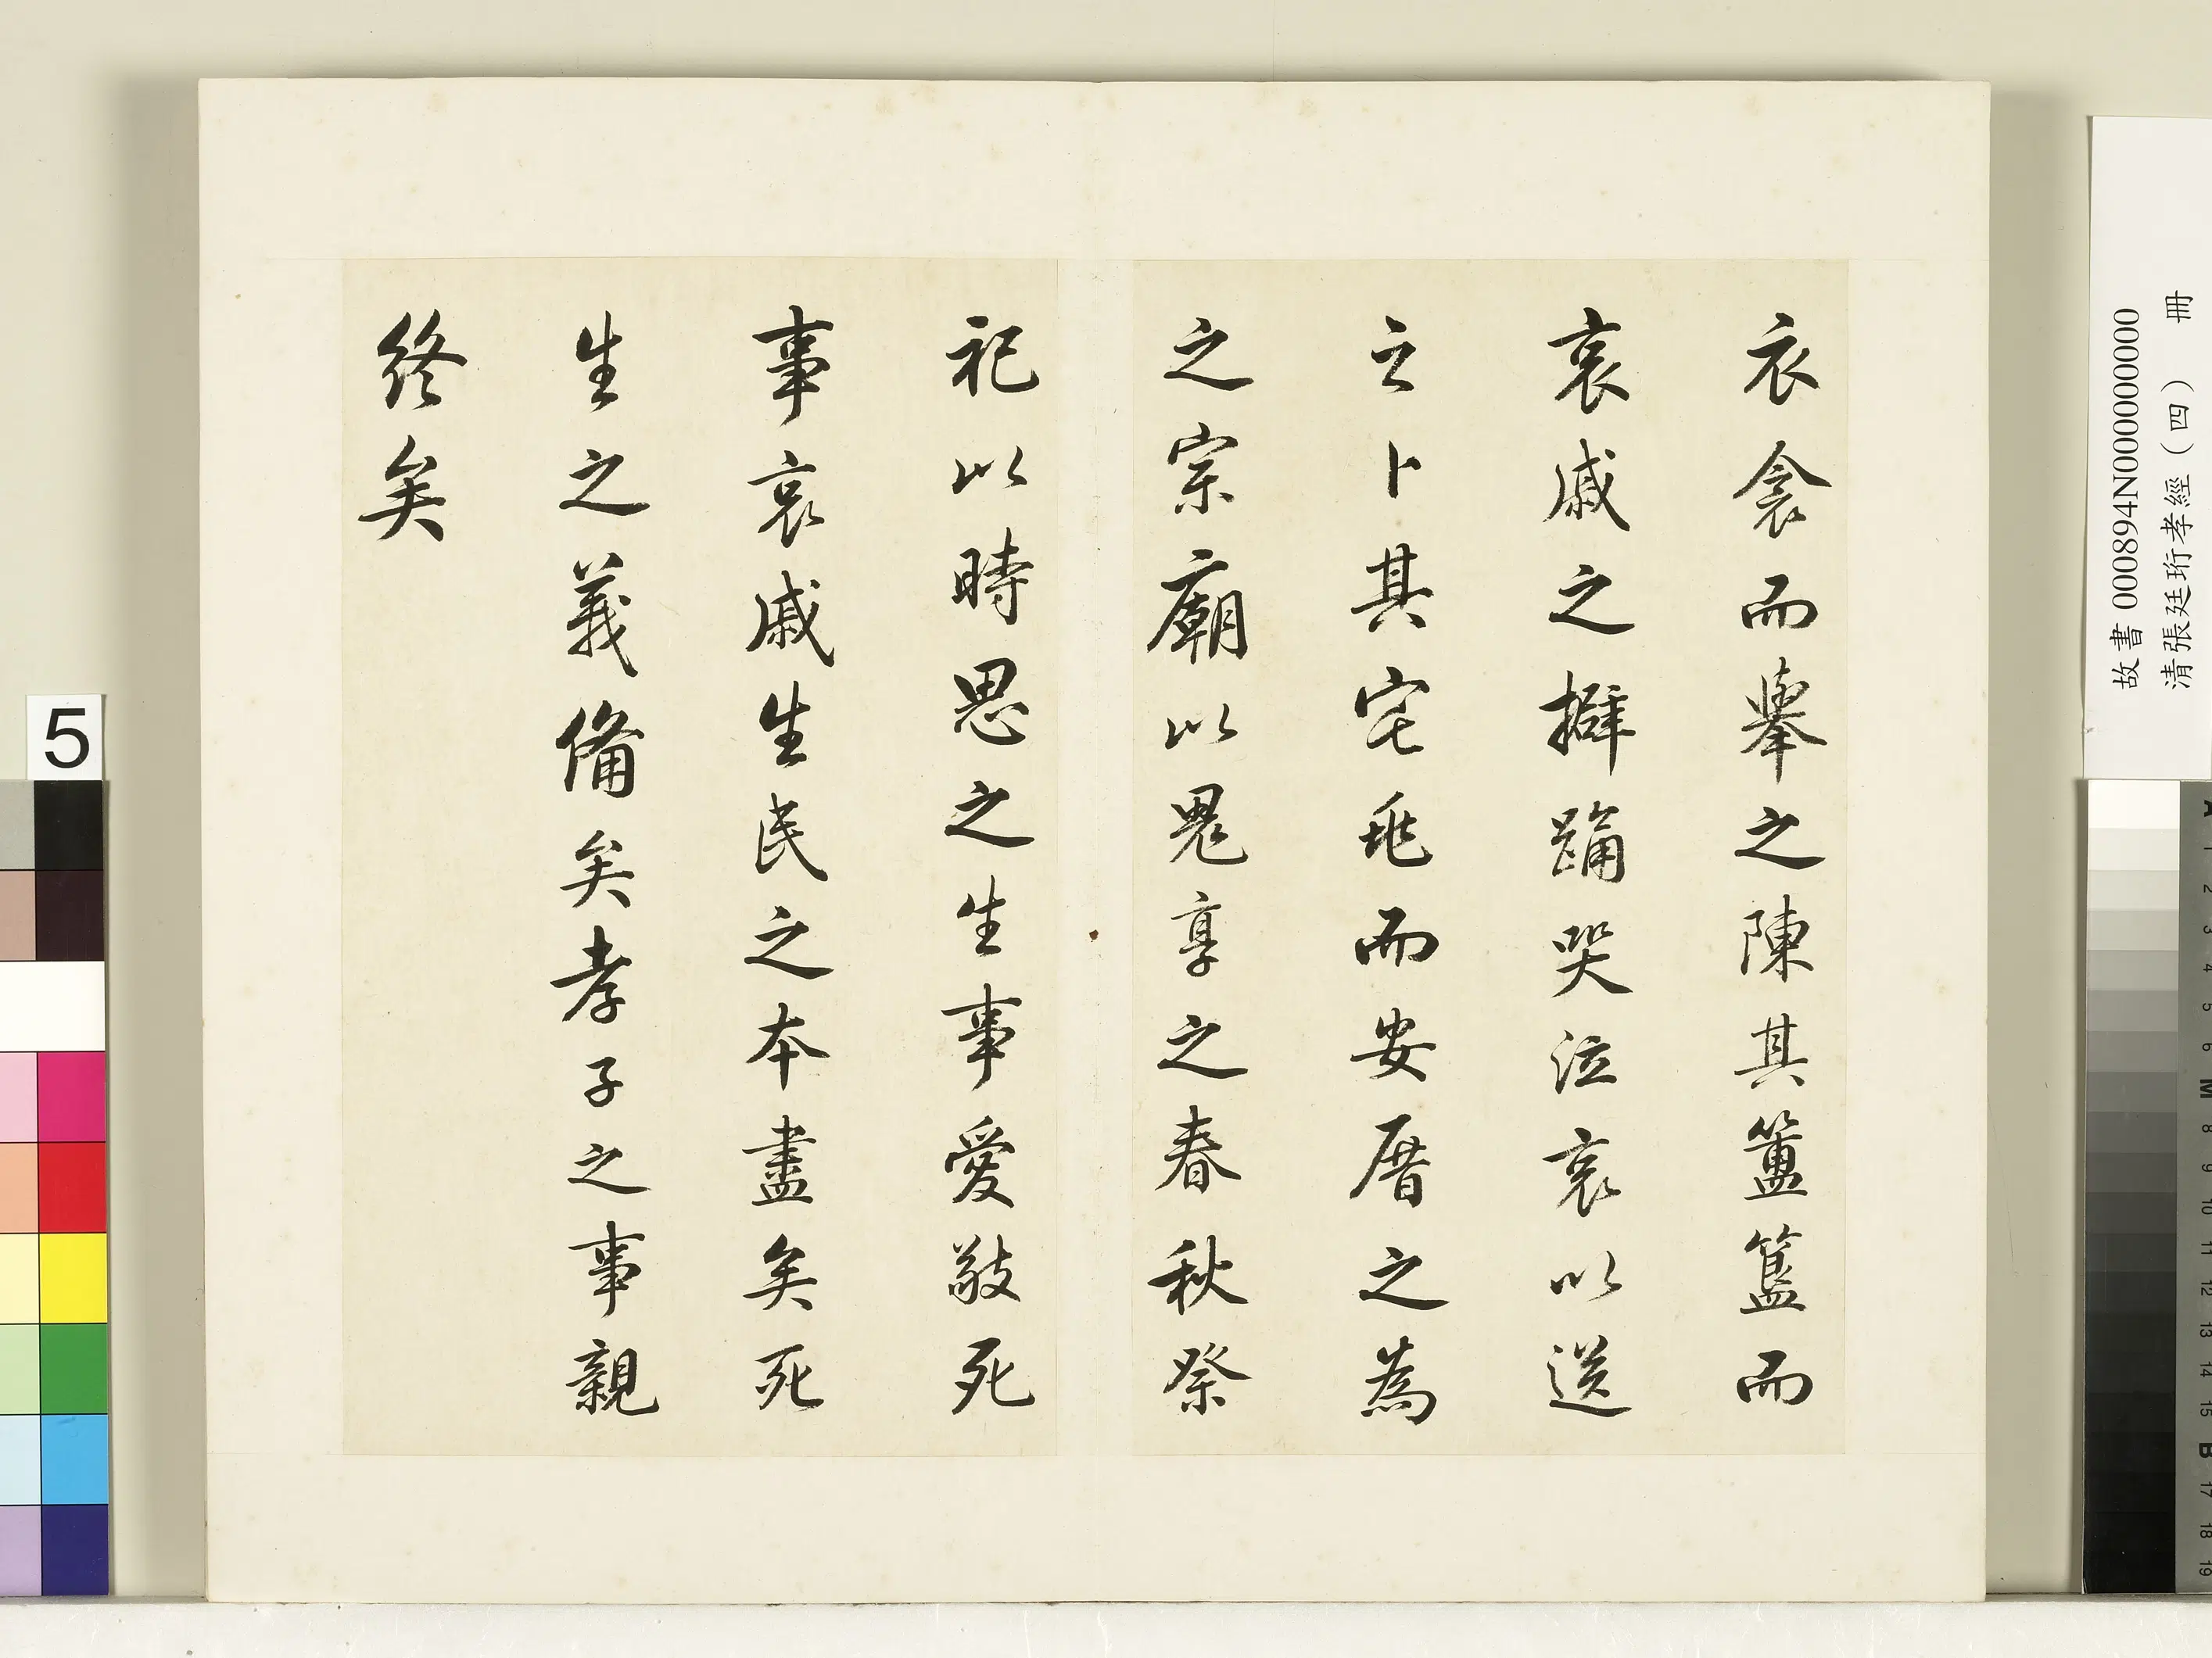 衣衾而舉之陳其簠簋而
哀慼之擗踊哭泣哀以送
之卜其宅兆而安厝之為
之宗廟以鬼享之春秋祭
祀以時思之生事愛敬死
事哀慼生民之本盡矣死
生之義備矣孝子之事親
終矣
故書 000894N000000000
清張廷珩孝經(四) 冊
5
A 1 2 3 4 5 6 M 8 9 10 11 12 13 14 15 B 17 18 19